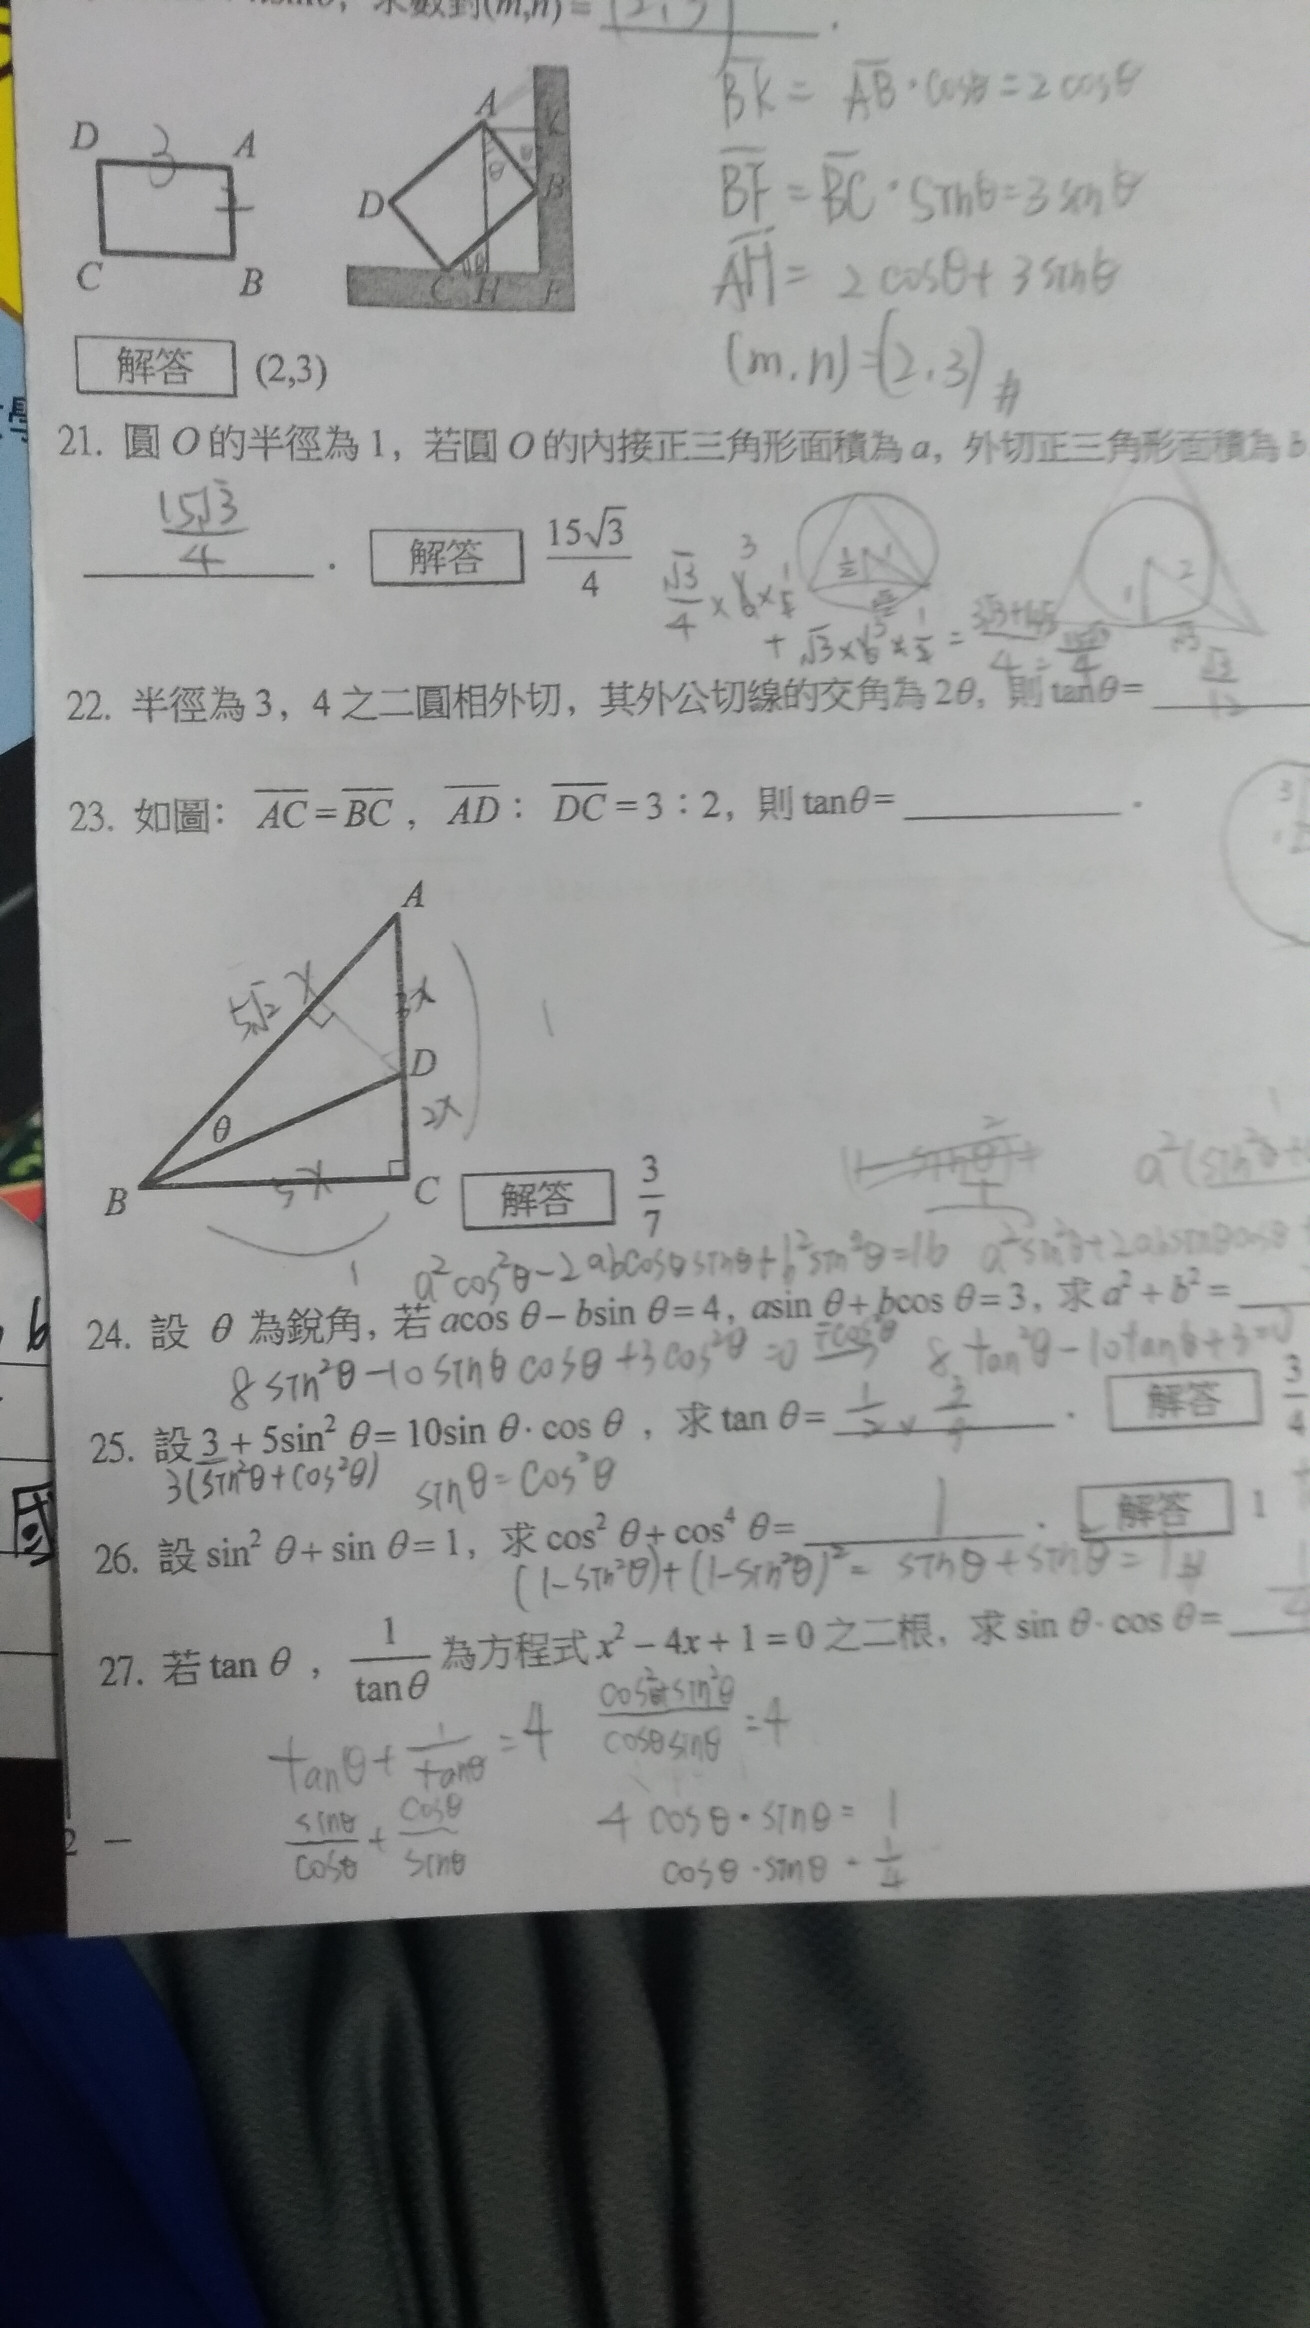 求數對(m,n)= (2,3) .
BK = AB·cosθ=2cosθ
BF = BC·sinθ=3sinθ
AH = 2cosθ+3sinθ
(m,n)=(2,3)#
D 3 A
C B
A K
θ
D B
C H F
解答 (2,3)
21. 圓 O 的半徑為 1，若圓 O 的內接正三角形面積為 a，外切正三角形面積為 b
15√3/4 . 解答 15√3/4
22. 半徑為 3，4 之二圓相外切，其外公切線的交角為 2θ，則 tanθ= √3/12
23. 如圖： AC=BC ， AD： DC=3：2，則 tanθ= .
A
5√2 x 3x
D 1
θ 2x
B 5x C
1
解答 3/7
a²cos²θ-2abcosθsinθ+b²sin²θ=16 a²sin²θ+2absinθcosθ
24. 設 θ 為銳角，若 acos θ− bsin θ= 4，asin θ+ bcos θ= 3，求 a² + b² =
8sin²θ-10sinθcosθ+3cos²θ=0 ÷cos²θ 8tan²θ-10tanθ+3=0
25. 設 3 + 5sin² θ= 10sin θ· cos θ ，求 tan θ= . 解答 3/4
3(sin²θ+cos²θ) sinθ=cos²θ
26. 設 sin² θ+ sin θ= 1，求 cos² θ+ cos⁴ θ= 1 . 解答 1
(1-sin²θ)+(1-sin²θ)²= sinθ+sin²θ=1#
27. 若 tan θ ， 1/tanθ 為方程式 x² − 4x + 1 = 0 之二根，求 sin θ· cos θ=
tanθ+1/tanθ=4 cos²θ+sin²θ/cosθsinθ=4
sinθ/cosθ+cosθ/sinθ 4cosθ·sinθ=1
cosθ·sinθ=1/4
2 −